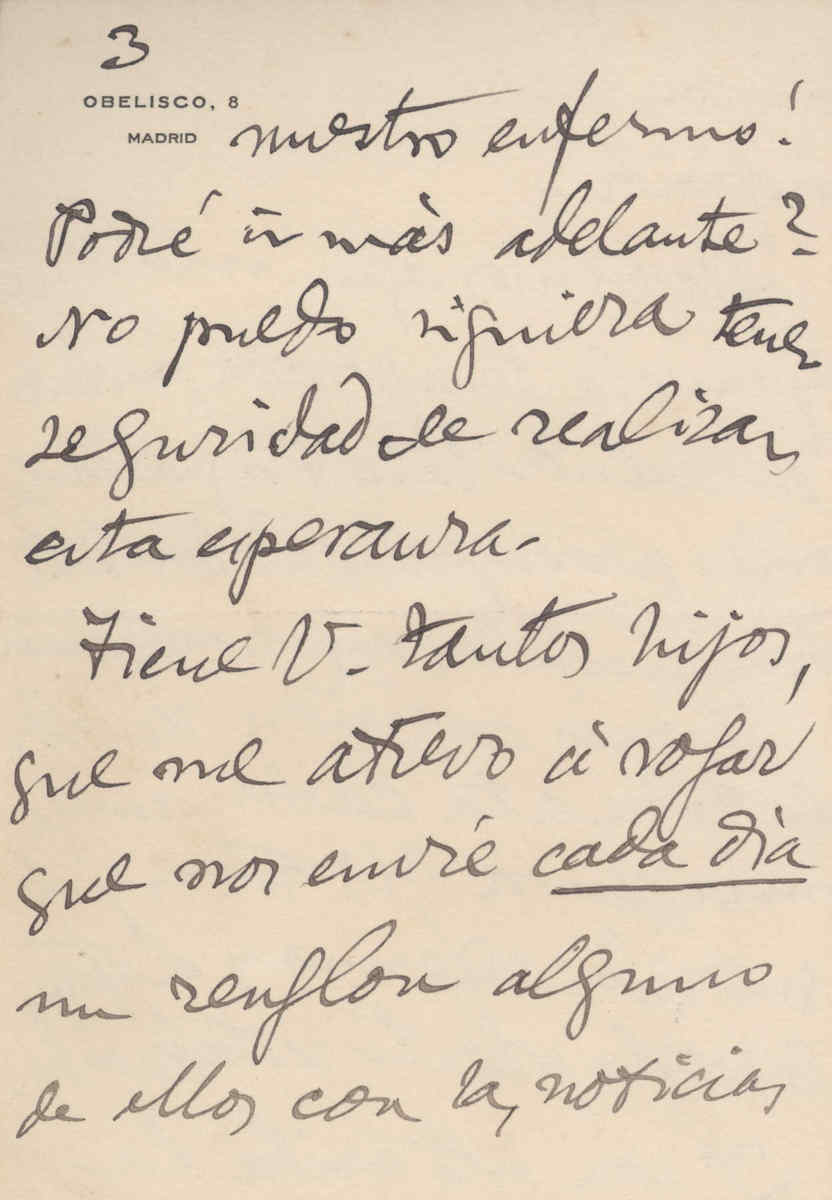 3
OBELISCO, 8
MADRID
nuestro enfermo!
Podré ir más adelante?
No puedo siquiera tener
seguridad de realizar
esta esperanza.
Tiene V. tantos hijos,
que me atrevo á rogar
que nos envíe cada día
un renglon alguno
de ellos con las noticias